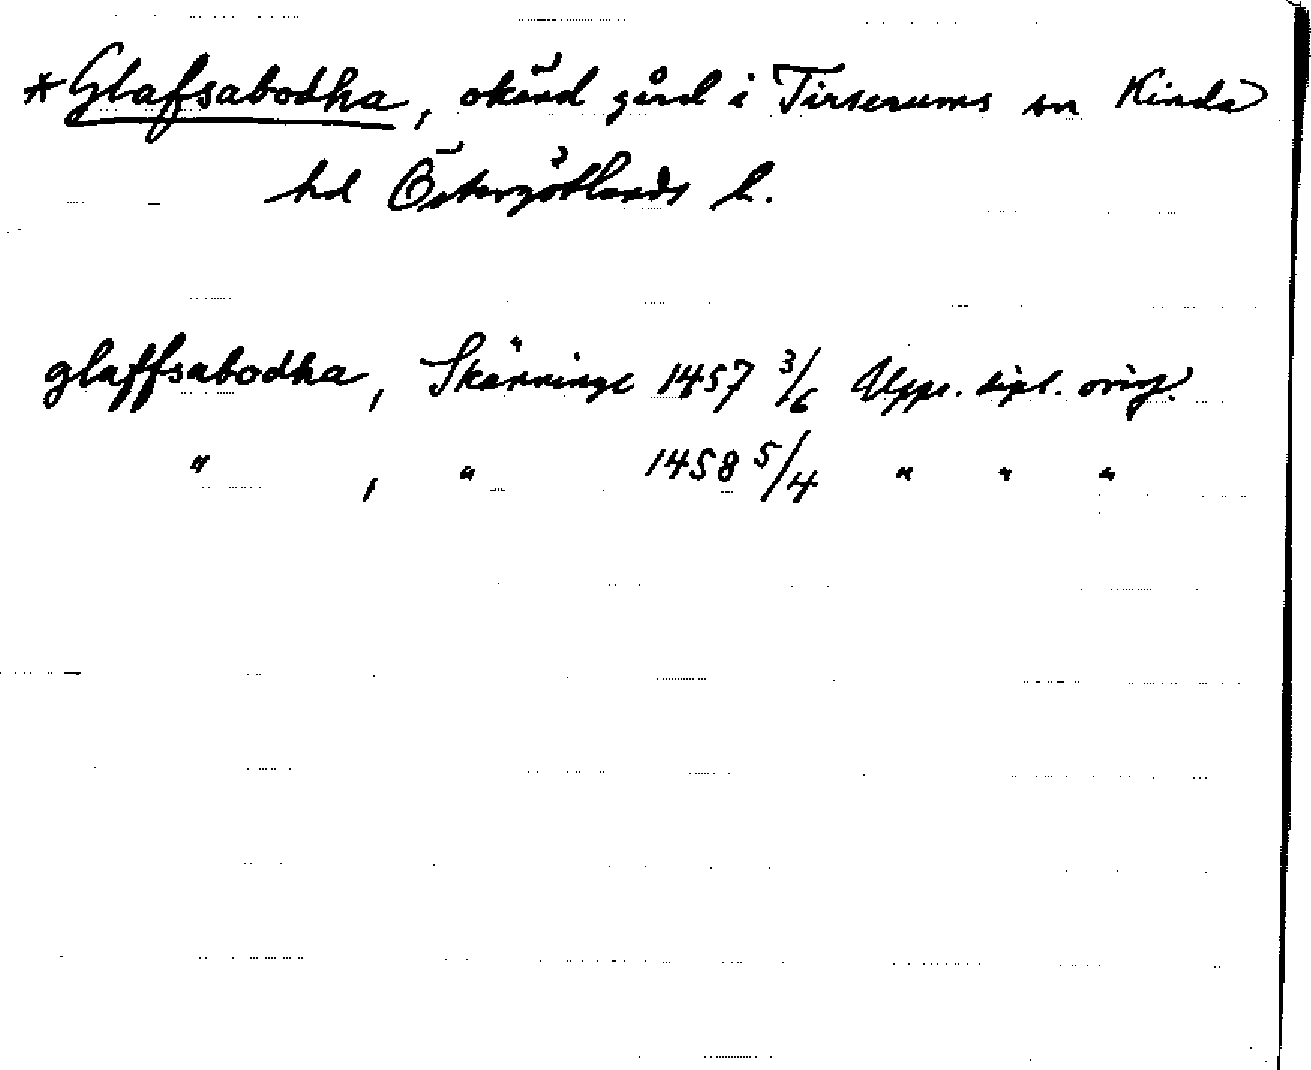 *Glafsabodha, okänd gård i Tirserums sn Kinda
hd Östergötlands l.
glaffsabodha, Skänninge 1457 3/6 Upps. dipl. orig.
" , " 1458 5/4 " " "